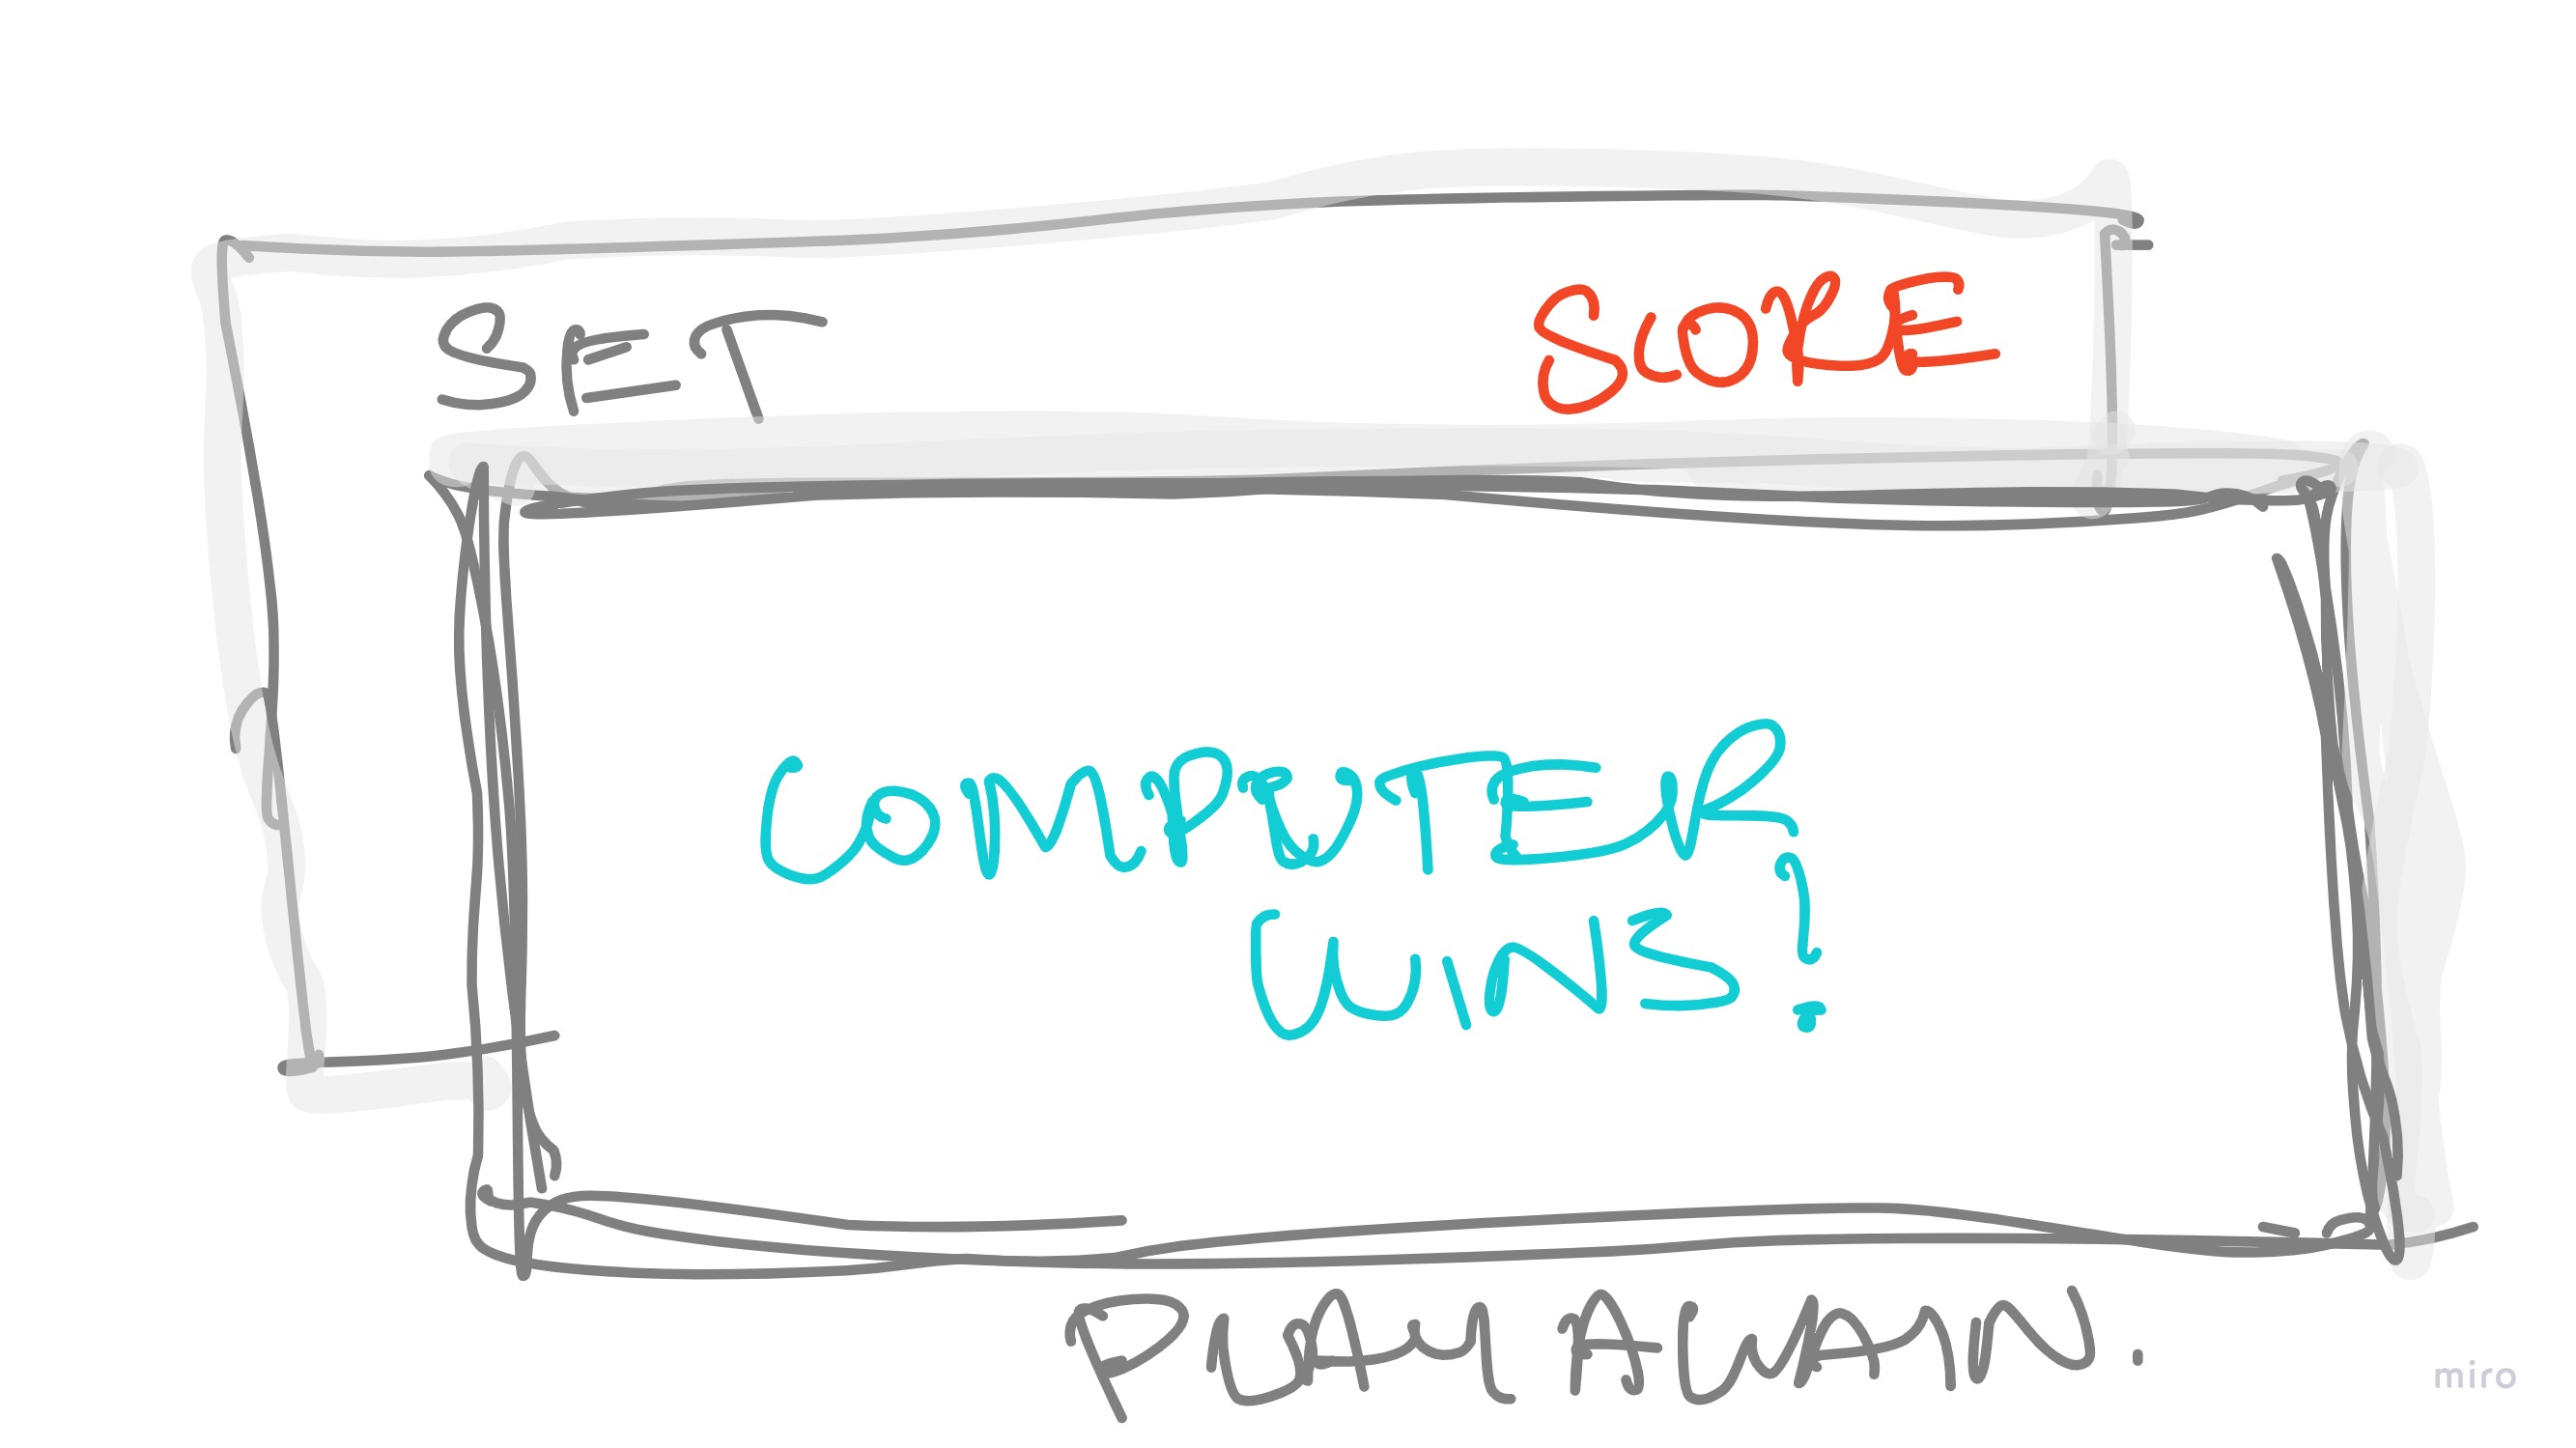 SET SCORE
COMPUTER
WINS!
PLAY AGAIN.
miro